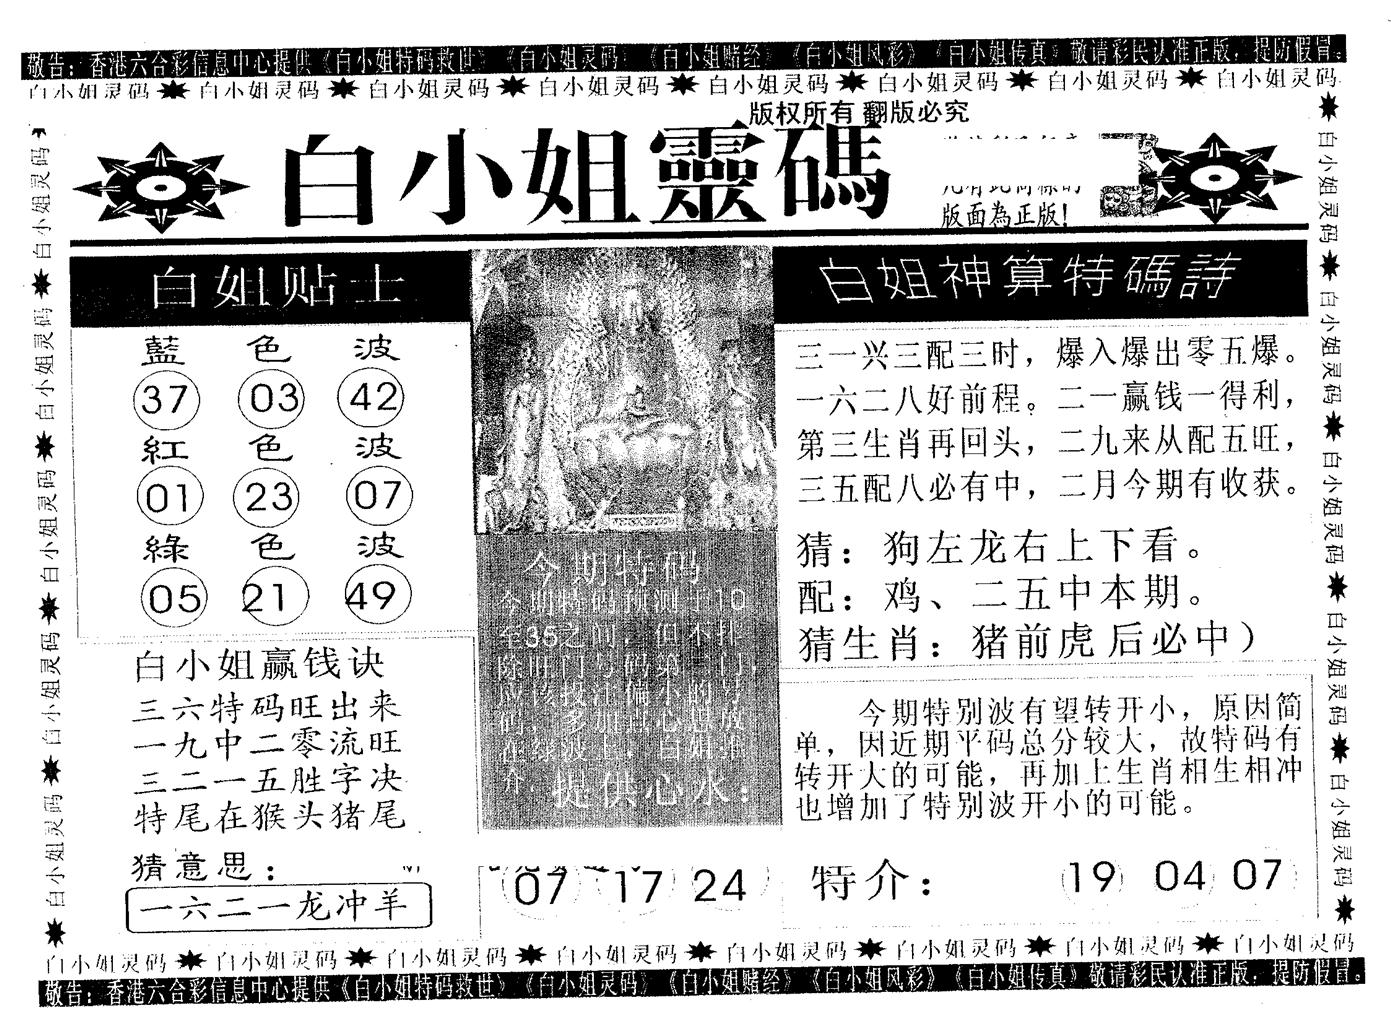 敬告：香港六合彩信息中心提供《白小姐特码救世》《白小姐灵码》《白小姐赌经》《白小姐风彩》《白小姐传真》敬请彩民认准正版，提防假冒。
白小姐灵码 白小姐灵码 白小姐灵码 白小姐灵码 白小姐灵码 白小姐灵码 白小姐灵码 白小姐灵码
版权所有 翻版必究
白小姐靈碼
版面為正版!
白小姐灵码 白小姐灵码 白小姐灵码 白小姐灵码 白小姐灵码
白姐贴士
藍色波
37 03 42
紅色波
01 23 07
綠色波
05 21 49
白小姐赢钱诀
三六特码旺出来
一九中二零流旺
三二一五胜字决
特尾在猴头猪尾
猜意思：
一六二一龙冲羊
今期特码
今期特码预测于10
至35之间，但不排
提供心水：
07 17 24
白姐神算特碼詩
三一兴三配三时，爆入爆出零五爆。
一六二八好前程。二一赢钱一得利，
第三生肖再回头，二九来从配五旺，
三五配八必有中，二月今期有收获。
猜：狗左龙右上下看。
配：鸡、二五中本期。
猜生肖：猪前虎后必中）
今期特别波有望转开小，原因简
单，因近期平码总分较大，故特码有
转开大的可能，再加上生肖相生相冲
也增加了特别波开小的可能。
特介： 19 04 07
白小姐灵码 白小姐灵码 白小姐灵码 白小姐灵码 白小姐灵码
白小姐灵码 白小姐灵码 白小姐灵码 白小姐灵码 白小姐灵码 白小姐灵码 白小姐灵码 白小姐灵码
敬告：香港六合彩信息中心提供《白小姐特码救世》《白小姐灵码》《白小姐赌经》《白小姐风彩》《白小姐传真》敬请彩民认准正版，提防假冒。